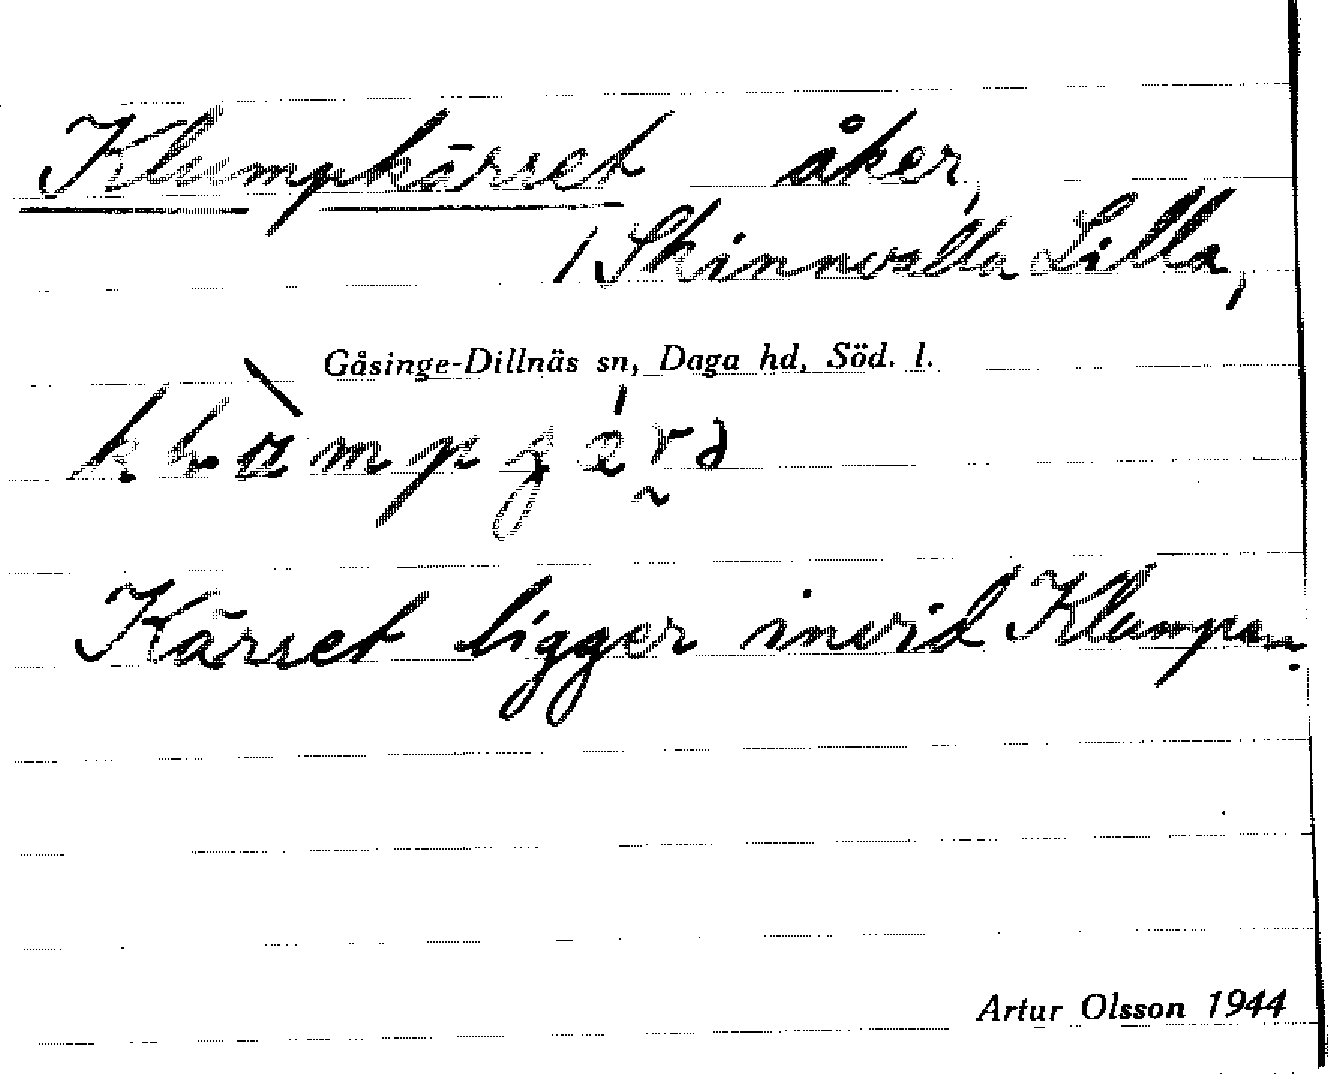 Klumpkärret åker,
/ Skinnvalla Lilla,
Gåsinge-Dillnäs sn, Daga hd, Söd. l.
Kärret ligger invid Klumpen.
Artur Olsson 1944